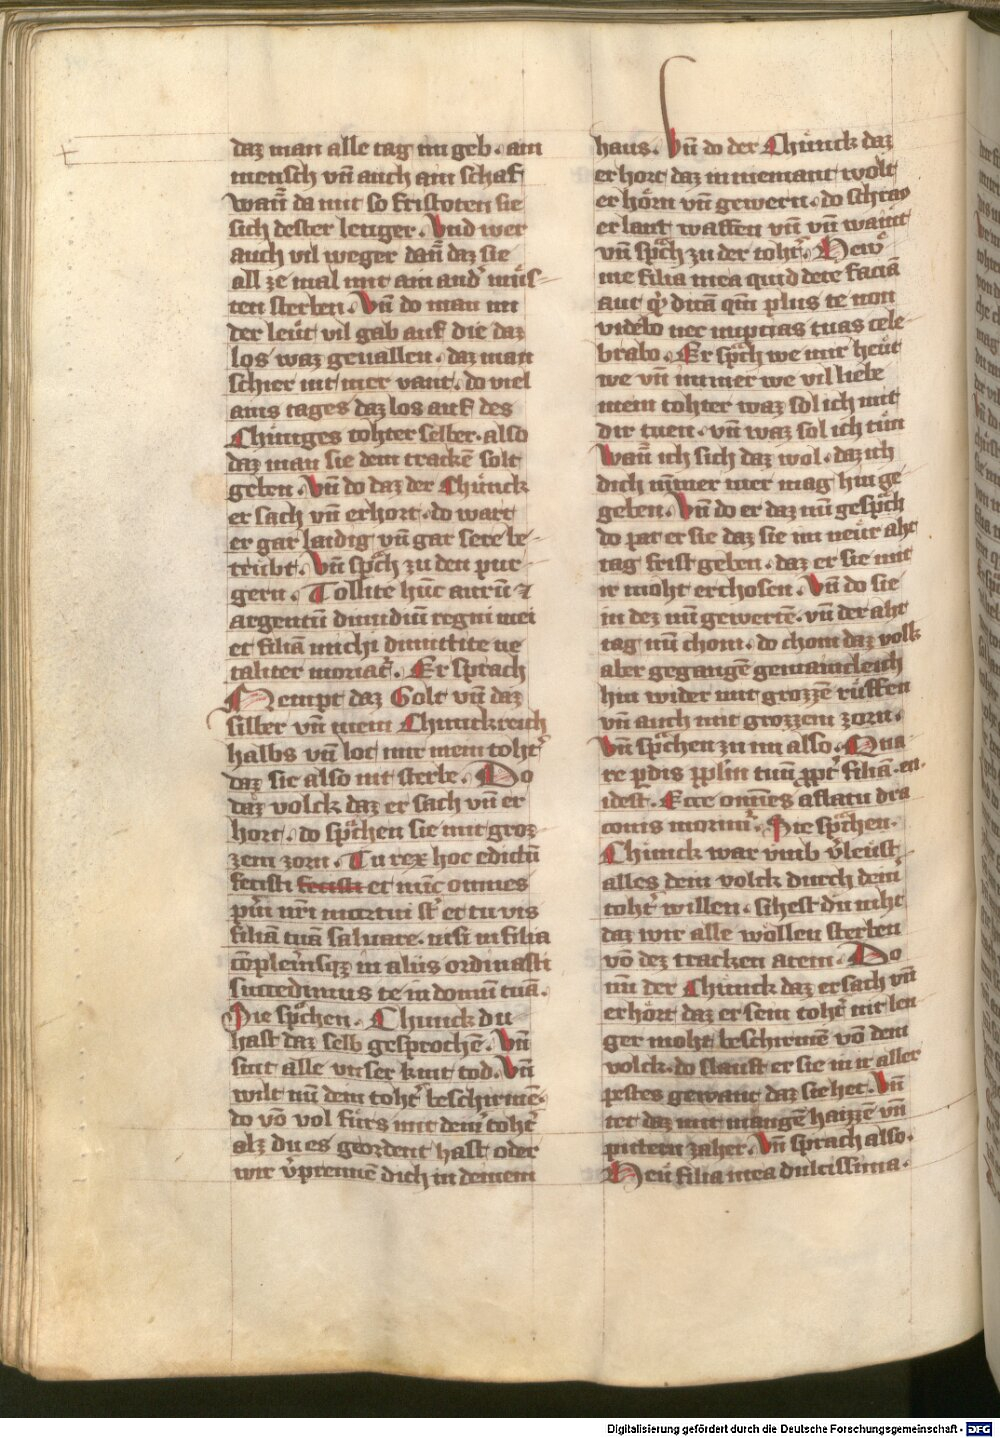 daz man alle tag im geb. ain
mensch vn̄ auch ain schaf
wann̄ da mit so fristoten sie
sich dester lenger. Vnd wer
auch vil weger dann̄ daz sie
all ze mal mit ain and' müs-
ten sterben. Vn̄ do man im
der leüt vil gab auf die daz
los waz geuallen. daz man
schier nit mer vant. do viel
ains tages daz los auf des
Chüniges tohter selber. also
daz man sie dem tracken̄ solt
geben. Vn̄ do daz der Chünck
er sach vn̄ erhort. do wart
er gar laidig vn̄ gar sere be-
trübt. Vn̄ spᵃch zu den pur
gern. Tollite hūc aurū ⁊
argentū dimidiū regni mei
et filiā michi dimittite ne
taliter moriat᷑. Er sprach
Nempt daz Golt vn̄ daz
silber vn̄ mein Chünckreich
halbs vn̄ lot mir mein toht'
daz sie also nit sterbe. Do
daz volck daz er sach vn̄ er
hort. do spᵃchen sie mit groz-
zem zorn. Tu rex hoc edictū
fecisti fecisti et nūc omnes
pu'i nr̄i mortui st̄ et tu vis
filiā tuā saluare. nisi in filia
cōpleu'isqz in aliis ordinasti
succedimus te in domū tuā.
Sie spᵃchen. Chünck du
hast daz selb gesprochē. Vn̄
sint alle vnser kint tod. Vn̄
wilt nū dein toht' beschirmē.
do vō vol fürs mit dein' toht'
alz du es geordent hast oder
wir v'prennē dich in deinem
haus. Vn̄ do der Chünck daz
er hort daz in niemant wolt
er hörn vn̄ gewern. do schray
er laut waffen vn̄ vn̄ waint
vn̄ spᵃch zu der toht'. Hew
me filia mea quid de te faciā
aut qd' dicā qm̄ plus te non
videbo nec nuptias tuas cele-
brabo. Er spᵃch we mir heüt
we vn̄ immer we vil liebe
mein tohter waz sol ich mit
dir tuen. vn̄ waz sol ich tün
Wann̄ ich sich daz wol. daz ich
dich nīmer mer mag hin ge
geben. Vn̄ do er daz nū gespᵃch
do pat er sie daz sie im neür aht
tag frist geben. daz er sie mit
ir moht erchosen. Vn̄ do sie
in dez nū gewertē. vn̄ der aht
tag nū chom. do chom daz volk
aber gegangē gemaincleich
hin wider mit grozzē rüffen
vn̄ auch mit grozzem zorn.
Vn̄ spᵃchen zu im also. Qua
re p̱dis pp̄lm̄ tuū ꝓpt' filiā. en.
idest. Ecce omn̄es afflatu dra
conis morim'. Sie spᵃchen.
Chünck war vmb v'leüst
alles dein volck durch dein'
toht' willen. sihest du niht
daz wir alle wöllen sterben
vō dez tracken atem. Do
nū der Chünck daz er sach vn̄
erhört daz er sein toht' nit len
ger moht beschirmē vō dem
volck. do slauft er sie in ir aller
pestes gewant daz sie het. Vn̄
tet daz mit mangē haizzē vn̄
pittern zaher. Vn̄ sprach also.
Heü filia mea dulcissima.
Digitalisierung gefördert durch die Deutsche Forschungsgemeinschaft - DFG